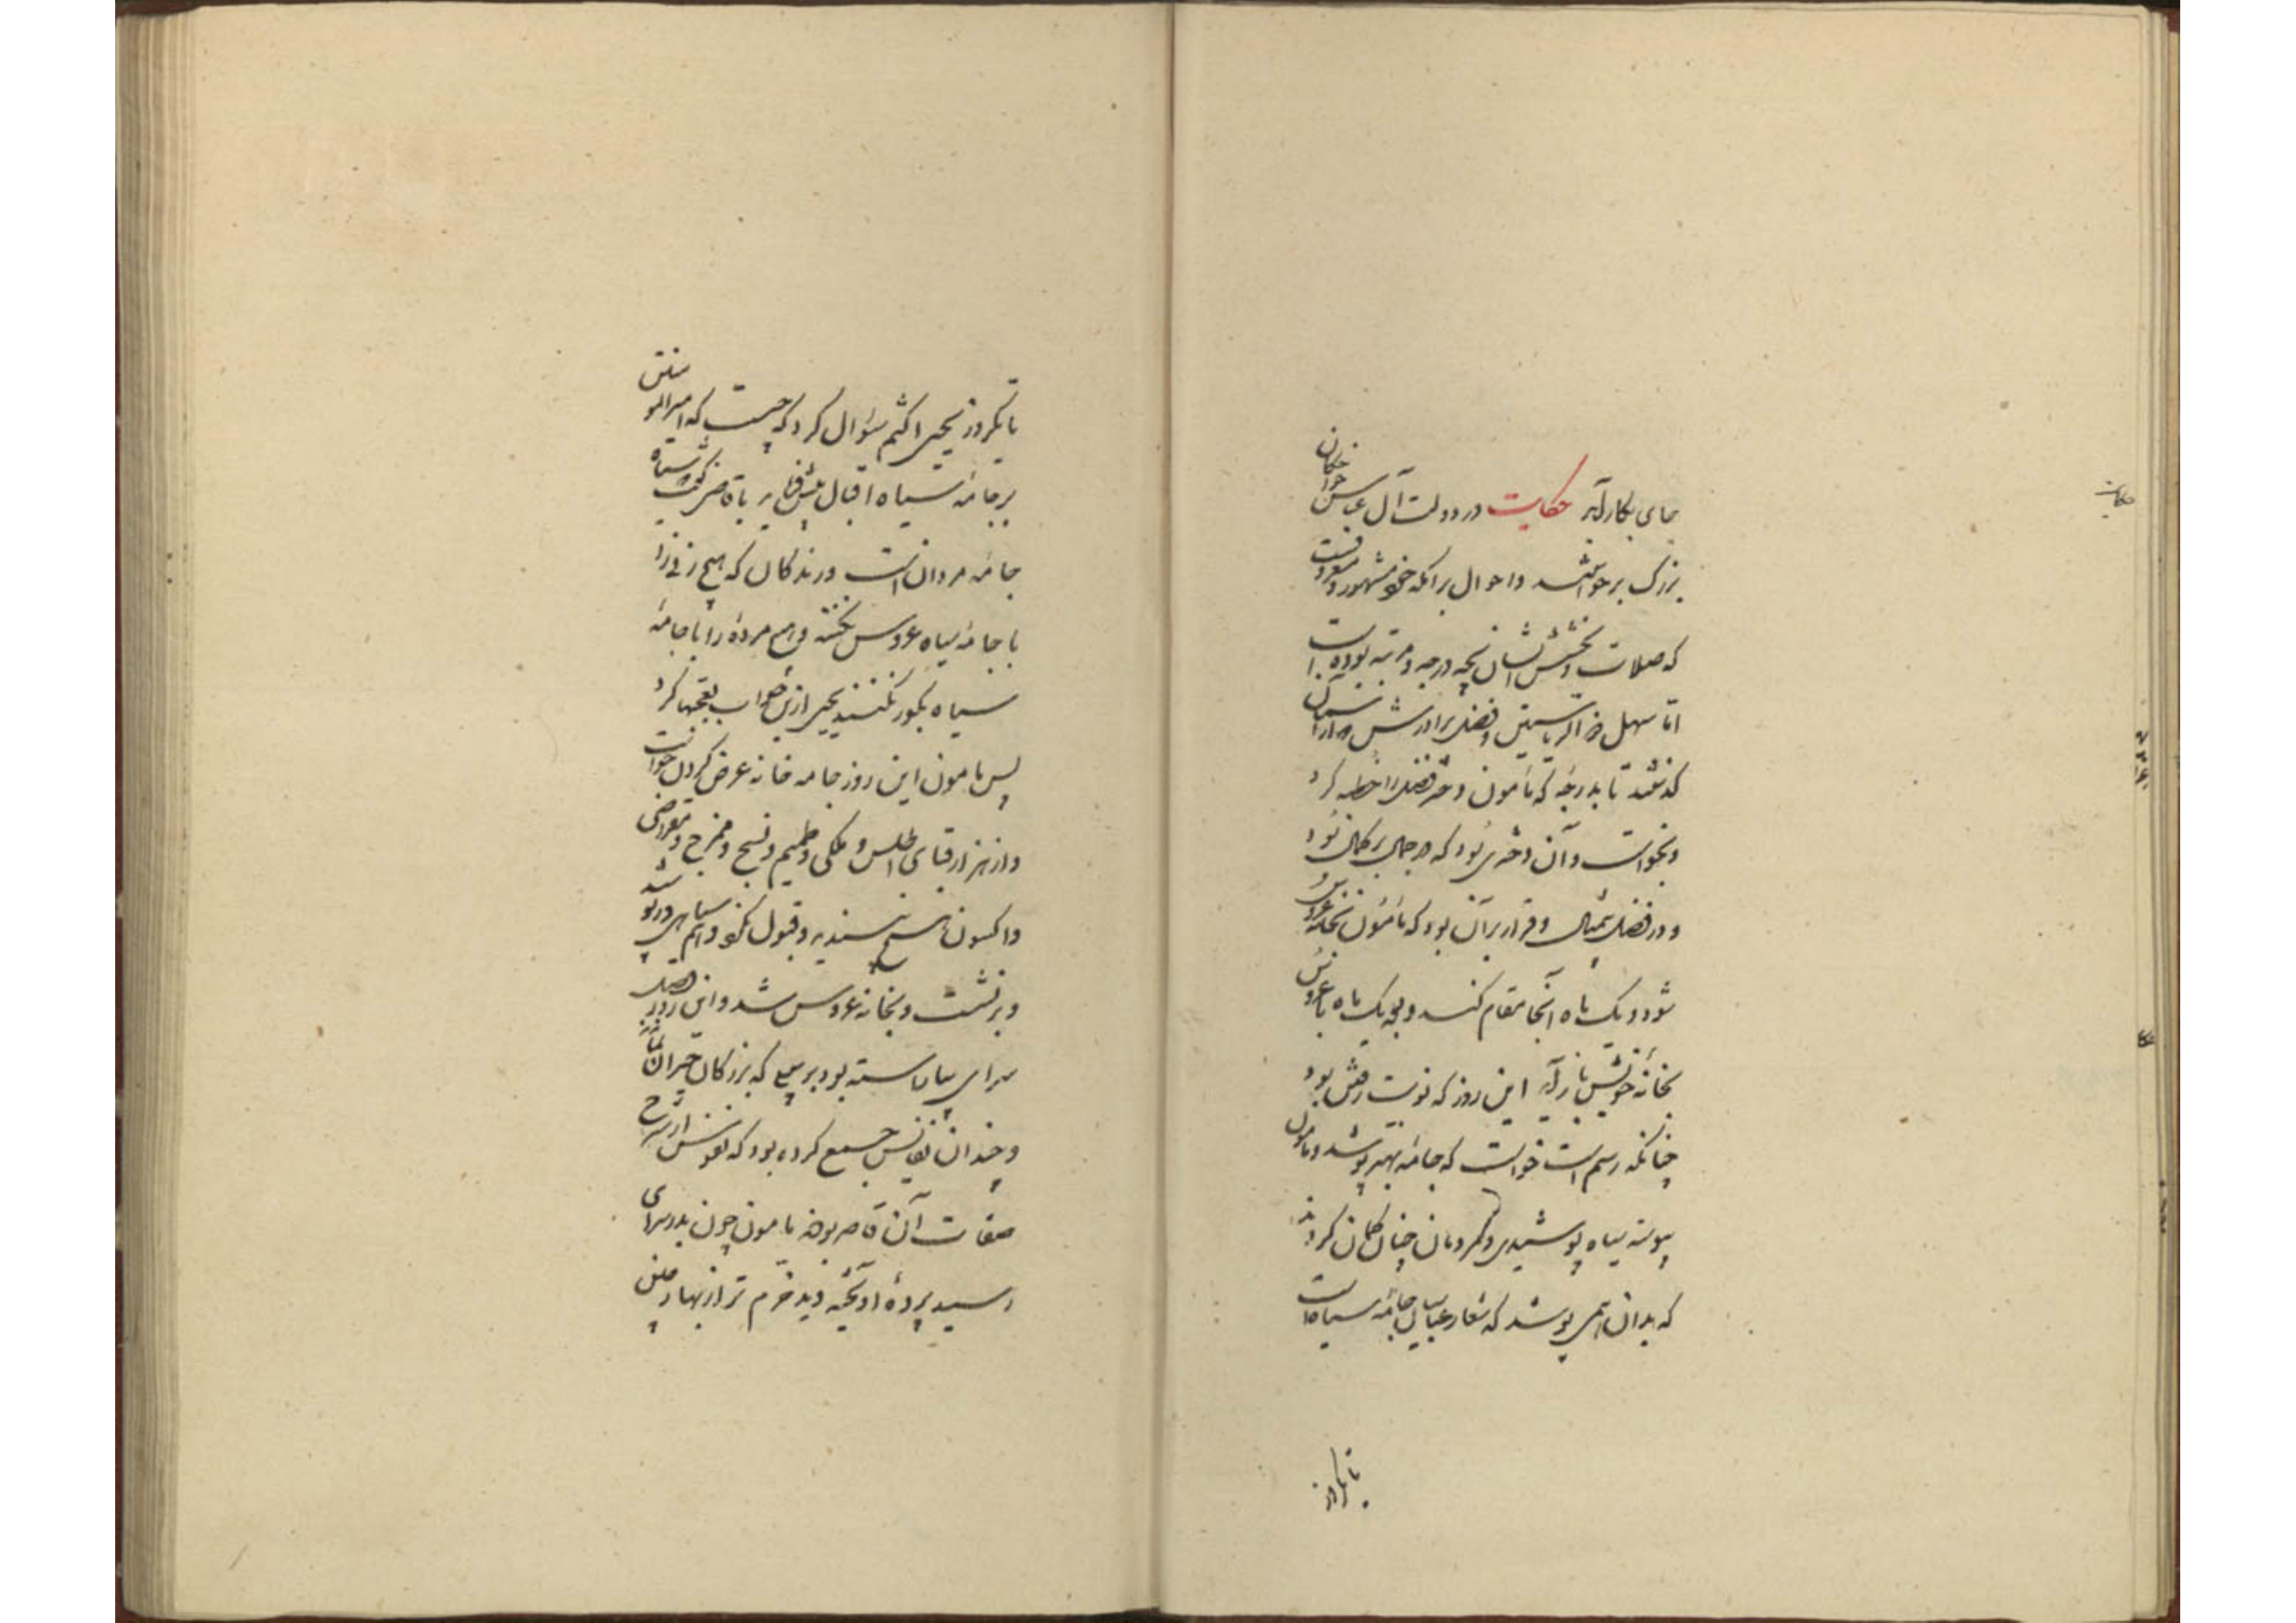 جای بکار آید حکایت در دولت آل عباس خواجکان
بزرک برخواستند و احوال برامکه خود مشهور و معروفست
که صلات و بخشش ایشان بچه درجه و مرتبه بوده است
اما سهل ذو الریاستین و فضل برادرش که از آسمان
گذشتند تا بدرجهٔ که مأمون دختر فضل را خطبه کرد
و بخواست و آن دختری بود که در جمال بر کمال بود
و در فضل بیمثال و قرار بر آن بود که مأمون بخانه عروس
شود و یک ماه آنجا مقام کند و بعد یک ماه با عروس
بخانه خویش باز آید این روز که نوبت رفتن بود
چنانکه رسم است خواست که جامهٔ بهتر پوشد و مامون
پیوسته سیاه پوشیدی و مردمان چنان کمان کردند
که بدان همی پوشد که شعار عباسیان جامهٔ سیاه است
تا یکروز
تا یکروز یحیی اکثم سؤال کرد که چیست که امیر المومنین
بر جامهٔ سیاه اقبال بیش میفرماید با قاضی گفت سیاه
جامهٔ مردان است و زندکان که هیچ زنی را
با جامه سیاه عروس نکنند و هیچ مرده را با جامهٔ
سیاه بگور نکنند یحیی از این جواب تعجبها کرد
پس مامون این روز جامه خانه عرض کردن خواست
و از هزار قبای اطلس و ملکی و طمیم و نسیج و ممزج و مقراضی
و اکسون هیچ نپسندید و قبول نکرد و هم سیاهی در پوشید
و برنشست و بخانه عروس شد و این روز فضل
سرای بیاراسته بود بر سبیلی که بزرکان حیران بماندند
و چندان نفایس جمع کرده بود که نفوس از شرح
صفات آن قاصر بودند مامون چون بدر سرای
رسید پردهٔ آویخته دید خرم تر از بهار چین
حکایت